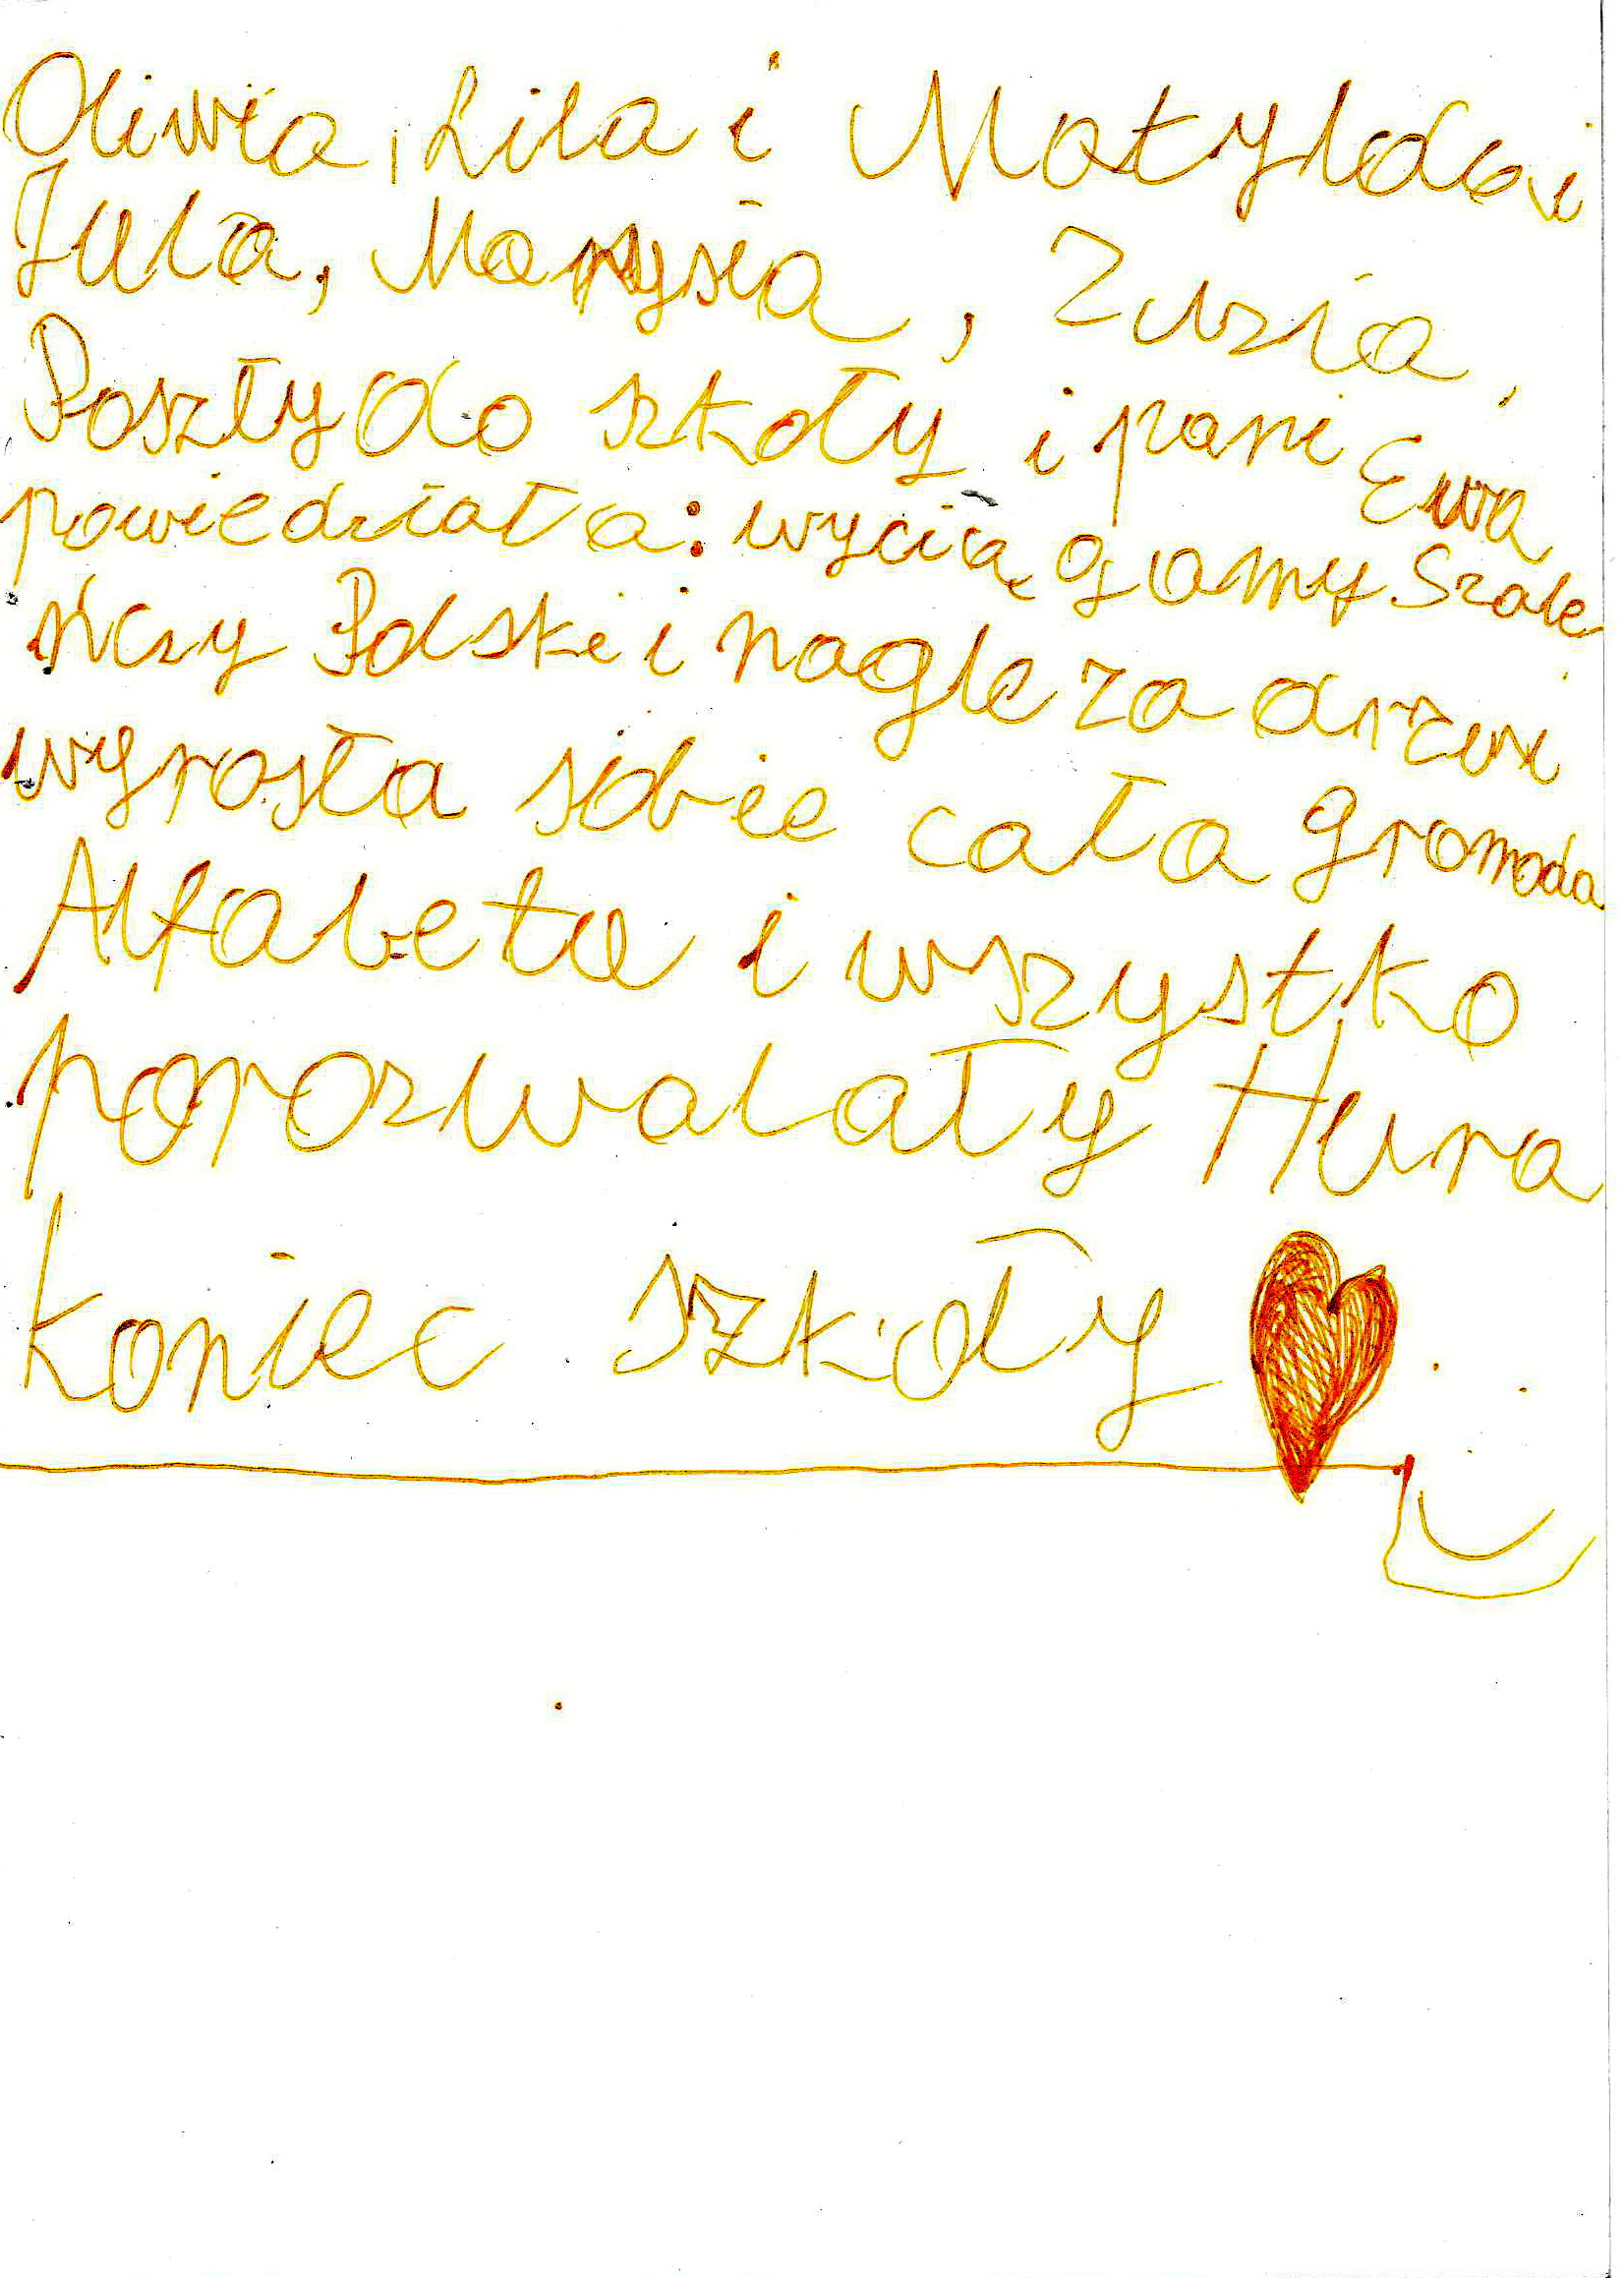 Oliwia, Lila i Matylda i
Jula, Marysia, Zuzia,
Poszły do szkoły i pani Ewa
powiedziała: wyciągamy Szale
ńczy Polski i nagle za drzwi
wyrosła sobie cała gromada
Alfabetu i wszystko
porozwalały Hura
koniec szkoły